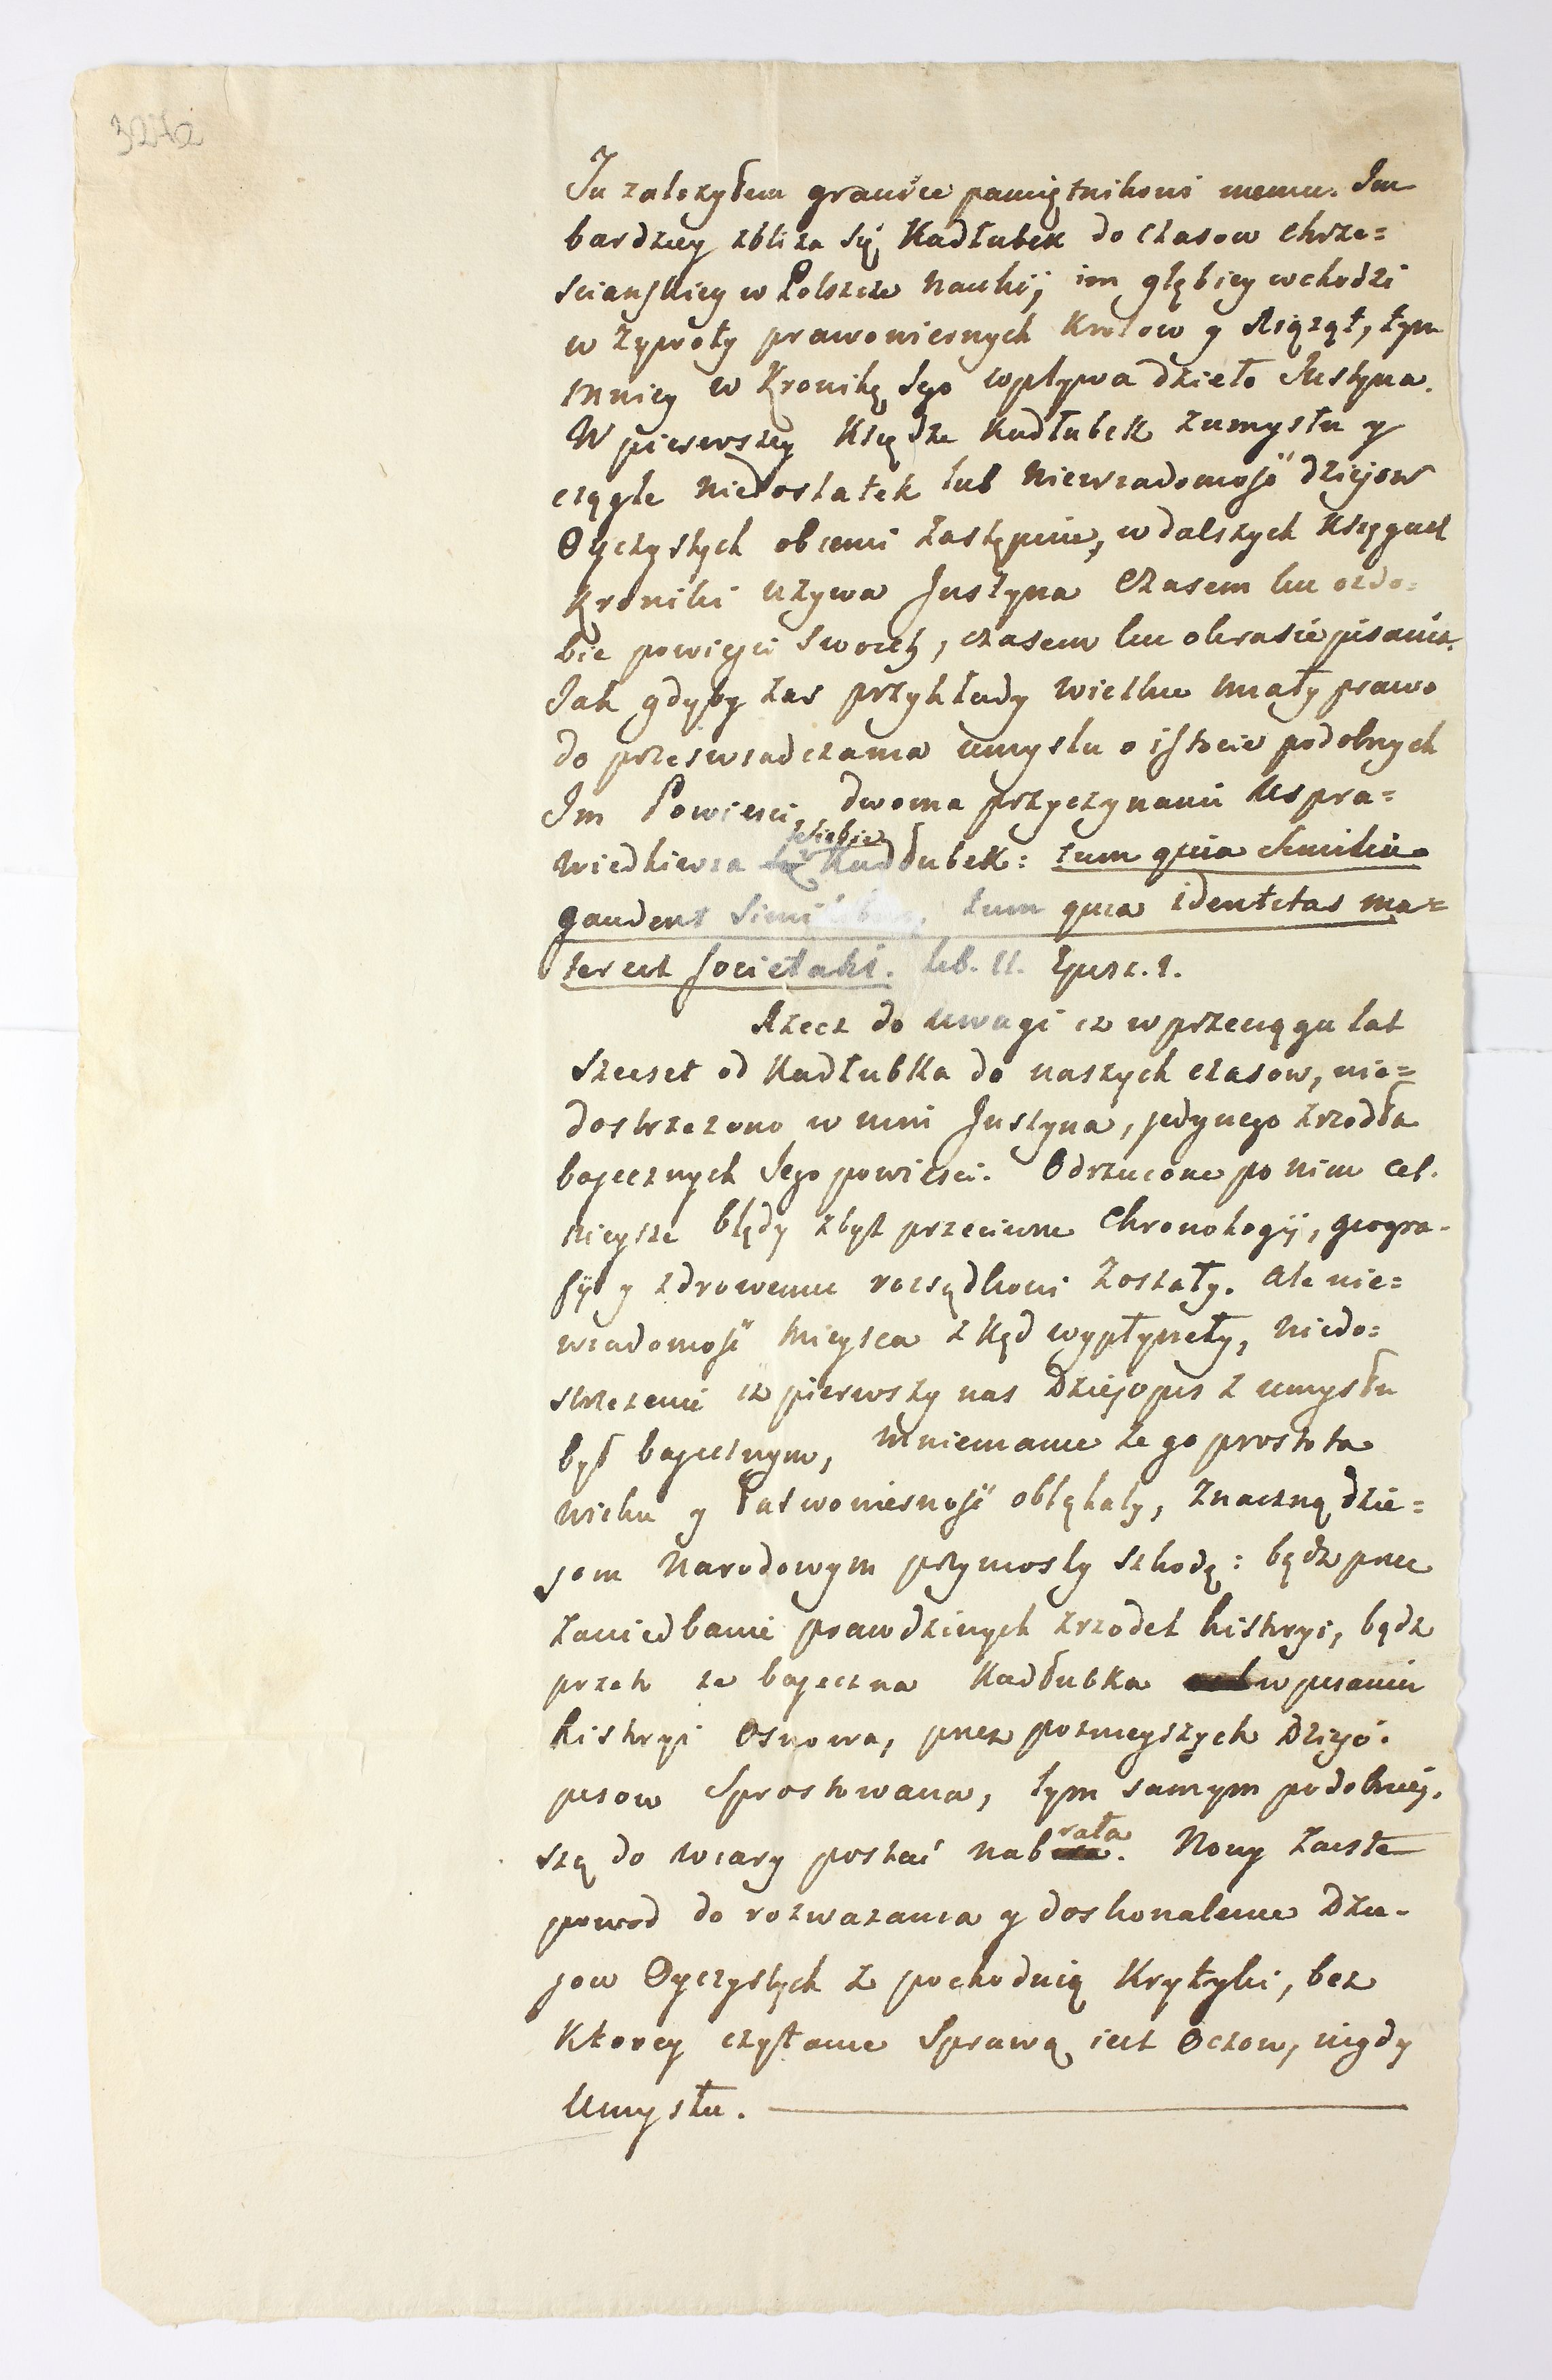 Tu założyłem granice pamiętnikowi memu. Im
bardziey zbliża się Kadłubek do czasow chrze=
sciańskiey w Polszcze nauki, im głębiey wchodzi
w żywoty prawowiernych Krolow y Xiążąt, tym
mniey w Kronikę Jego wpływa dzieło Justyna.
W pierwszey Księdze Kadłubek z umysłu y
ciągle niedostatek lub niewiadomość dziejow
Oyczystych obcemi zastępuie, w dalszych księgach
Kroniki używa Justyna czasem ku ozdo=
bie powieści swoich, czasem ku okrasie pisania.
Jak gdyby zas przykłady wielkie miały prawo
do przeswiadczania umysłu o istocie podobnych
Im Powiesci, dwoma przyczynami uspra=
wiedliwia siebie Kadłubek: tum quia Similia
gaudent Similibus, tum quia identitas ma=
ter est societatis. Lib. II. Epist. 1.
Rzecz do uwagi iż w przeciągu lat
Szesset od Kadłubka do naszych czasow, nie=
dostrzeżono w nim Justyna, jedynego zrzodła
bajecznych Jego powiesci. Odrzucone po nim cel=
nieysze błędy zbyt przeciwne Chronologij, geogra=
fij y zdrowemu rozsądkowi zostały. Ale nie=
wiadomość mieysca z kąd wypłynęły, niedo=
strzeżenie iż pierwszy nas Dziejopis z umysłu
był bajecznym, mniemanie że go prostota
wieku y łatwowierność obłąkały, znaczną dzie=
jom Narodowym przyniosły szkodę: bądź przez
zaniedbanie prawdziwych zrzodeł historyi, bądz
przeto że bajeczna Kadłubka w pisaniu
historyi osnowa, przez poznieyszych Dziejo=
pisow sprostowana, tym samym podobniey=
szą do wiary postać nabrała. Nowy zaiste
powod do rozważania y doskonalenia Dzie=
jow Oyczystych z pochodnią Krytyki, bez
Ktorey czytanie sprawą iest Oczow, nigdy
Umysłu.